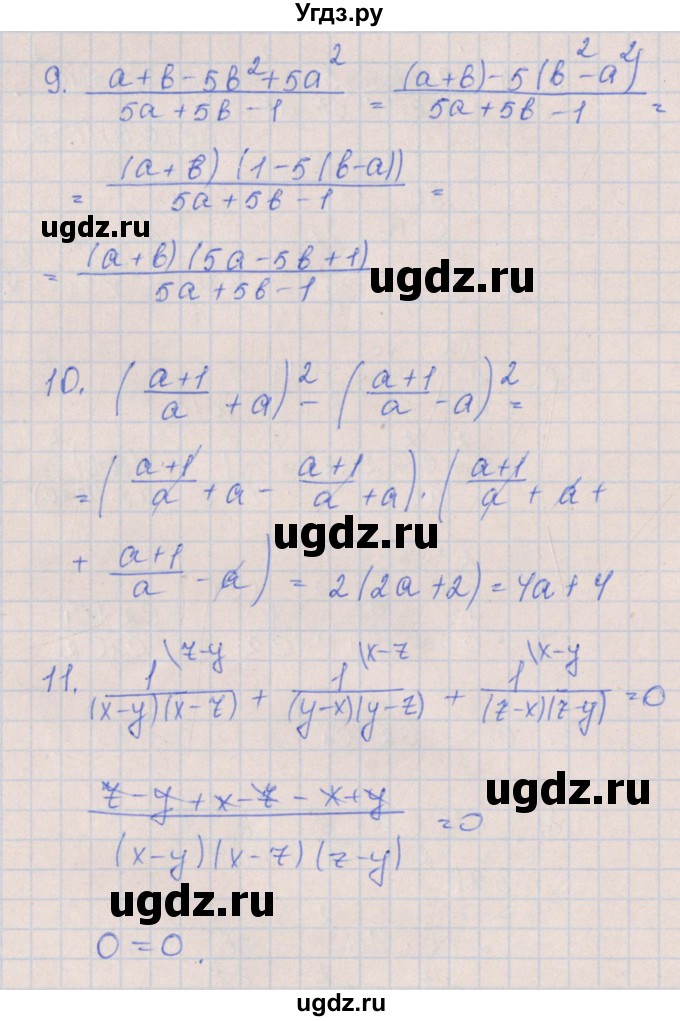 Угдз.ру
9. (a+b-5b²+5a²)/(5a+5b-1) = ((a+b)-5(b²-a²))/(5a+5b-1) =
= ((a+b)(1-5(b-a)))/(5a+5b-1) =
ugdz.ru
= ((a+b)(5a-5b+1))/(5a+5b-1)
ugdz.ru
10. ((a+1)/a + a)² - ((a+1)/a - a)² =
= ((a+1)/a + a - (a+1)/a + a) · ((a+1)/a + a +
ugdz.ru
+ (a+1)/a - a) = 2(2a+2) = 4a+4
11. 1\z-y/((x-y)(x-z)) + 1\x-z/((y-x)(y-z)) + 1\x-y/((z-x)(z-y)) = 0
ugdz.ru
(z-y+x-z-x+y)/((x-y)(x-z)(z-y)) = 0
ugdz.ru
0 = 0.
ugdz.ru
ugdz.ru